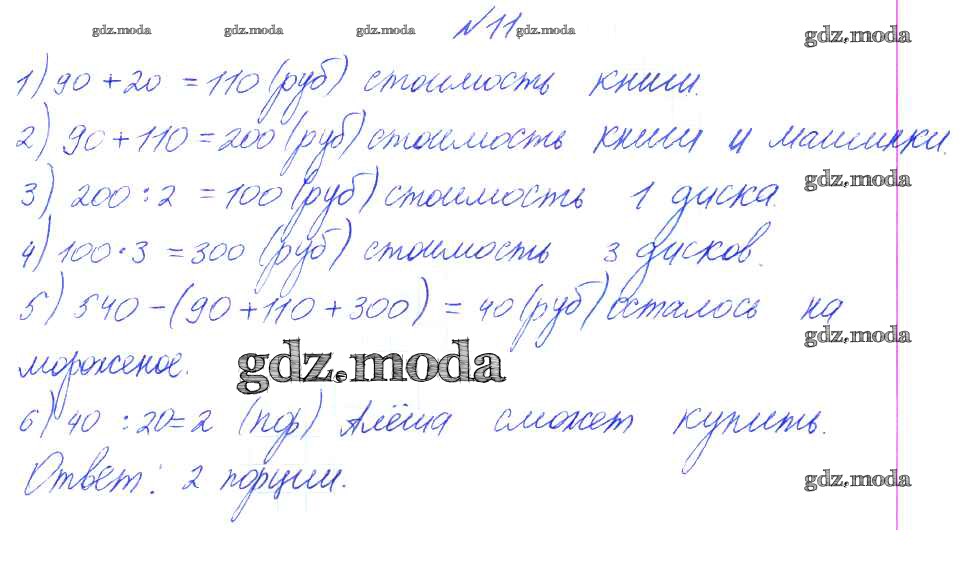 gdz.moda gdz.moda gdz.moda №11 gdz.moda gdz.moda
1) 90+20 =110 (руб) стоимость книги.
2) 90+110=200 (руб) стоимость книги и машинки.
gdz.moda
3) 200:2 =100 (руб) стоимость 1 диска.
4) 100·3 =300 (руб) стоимость 3 дисков.
5) 540-(90+110+300) = 40 (руб) осталось на
gdz.moda
мороженое.
gdz.moda
6) 40 :20=2 (пор) Алёша сможет купить.
Ответ: 2 порции.
gdz.moda